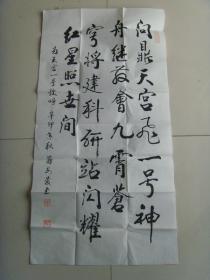 问鼎天宫飞一号神
舟继发会九霄苍
穹将建科研站闪耀
红星照世间
为天宫一号
辛卯年秋